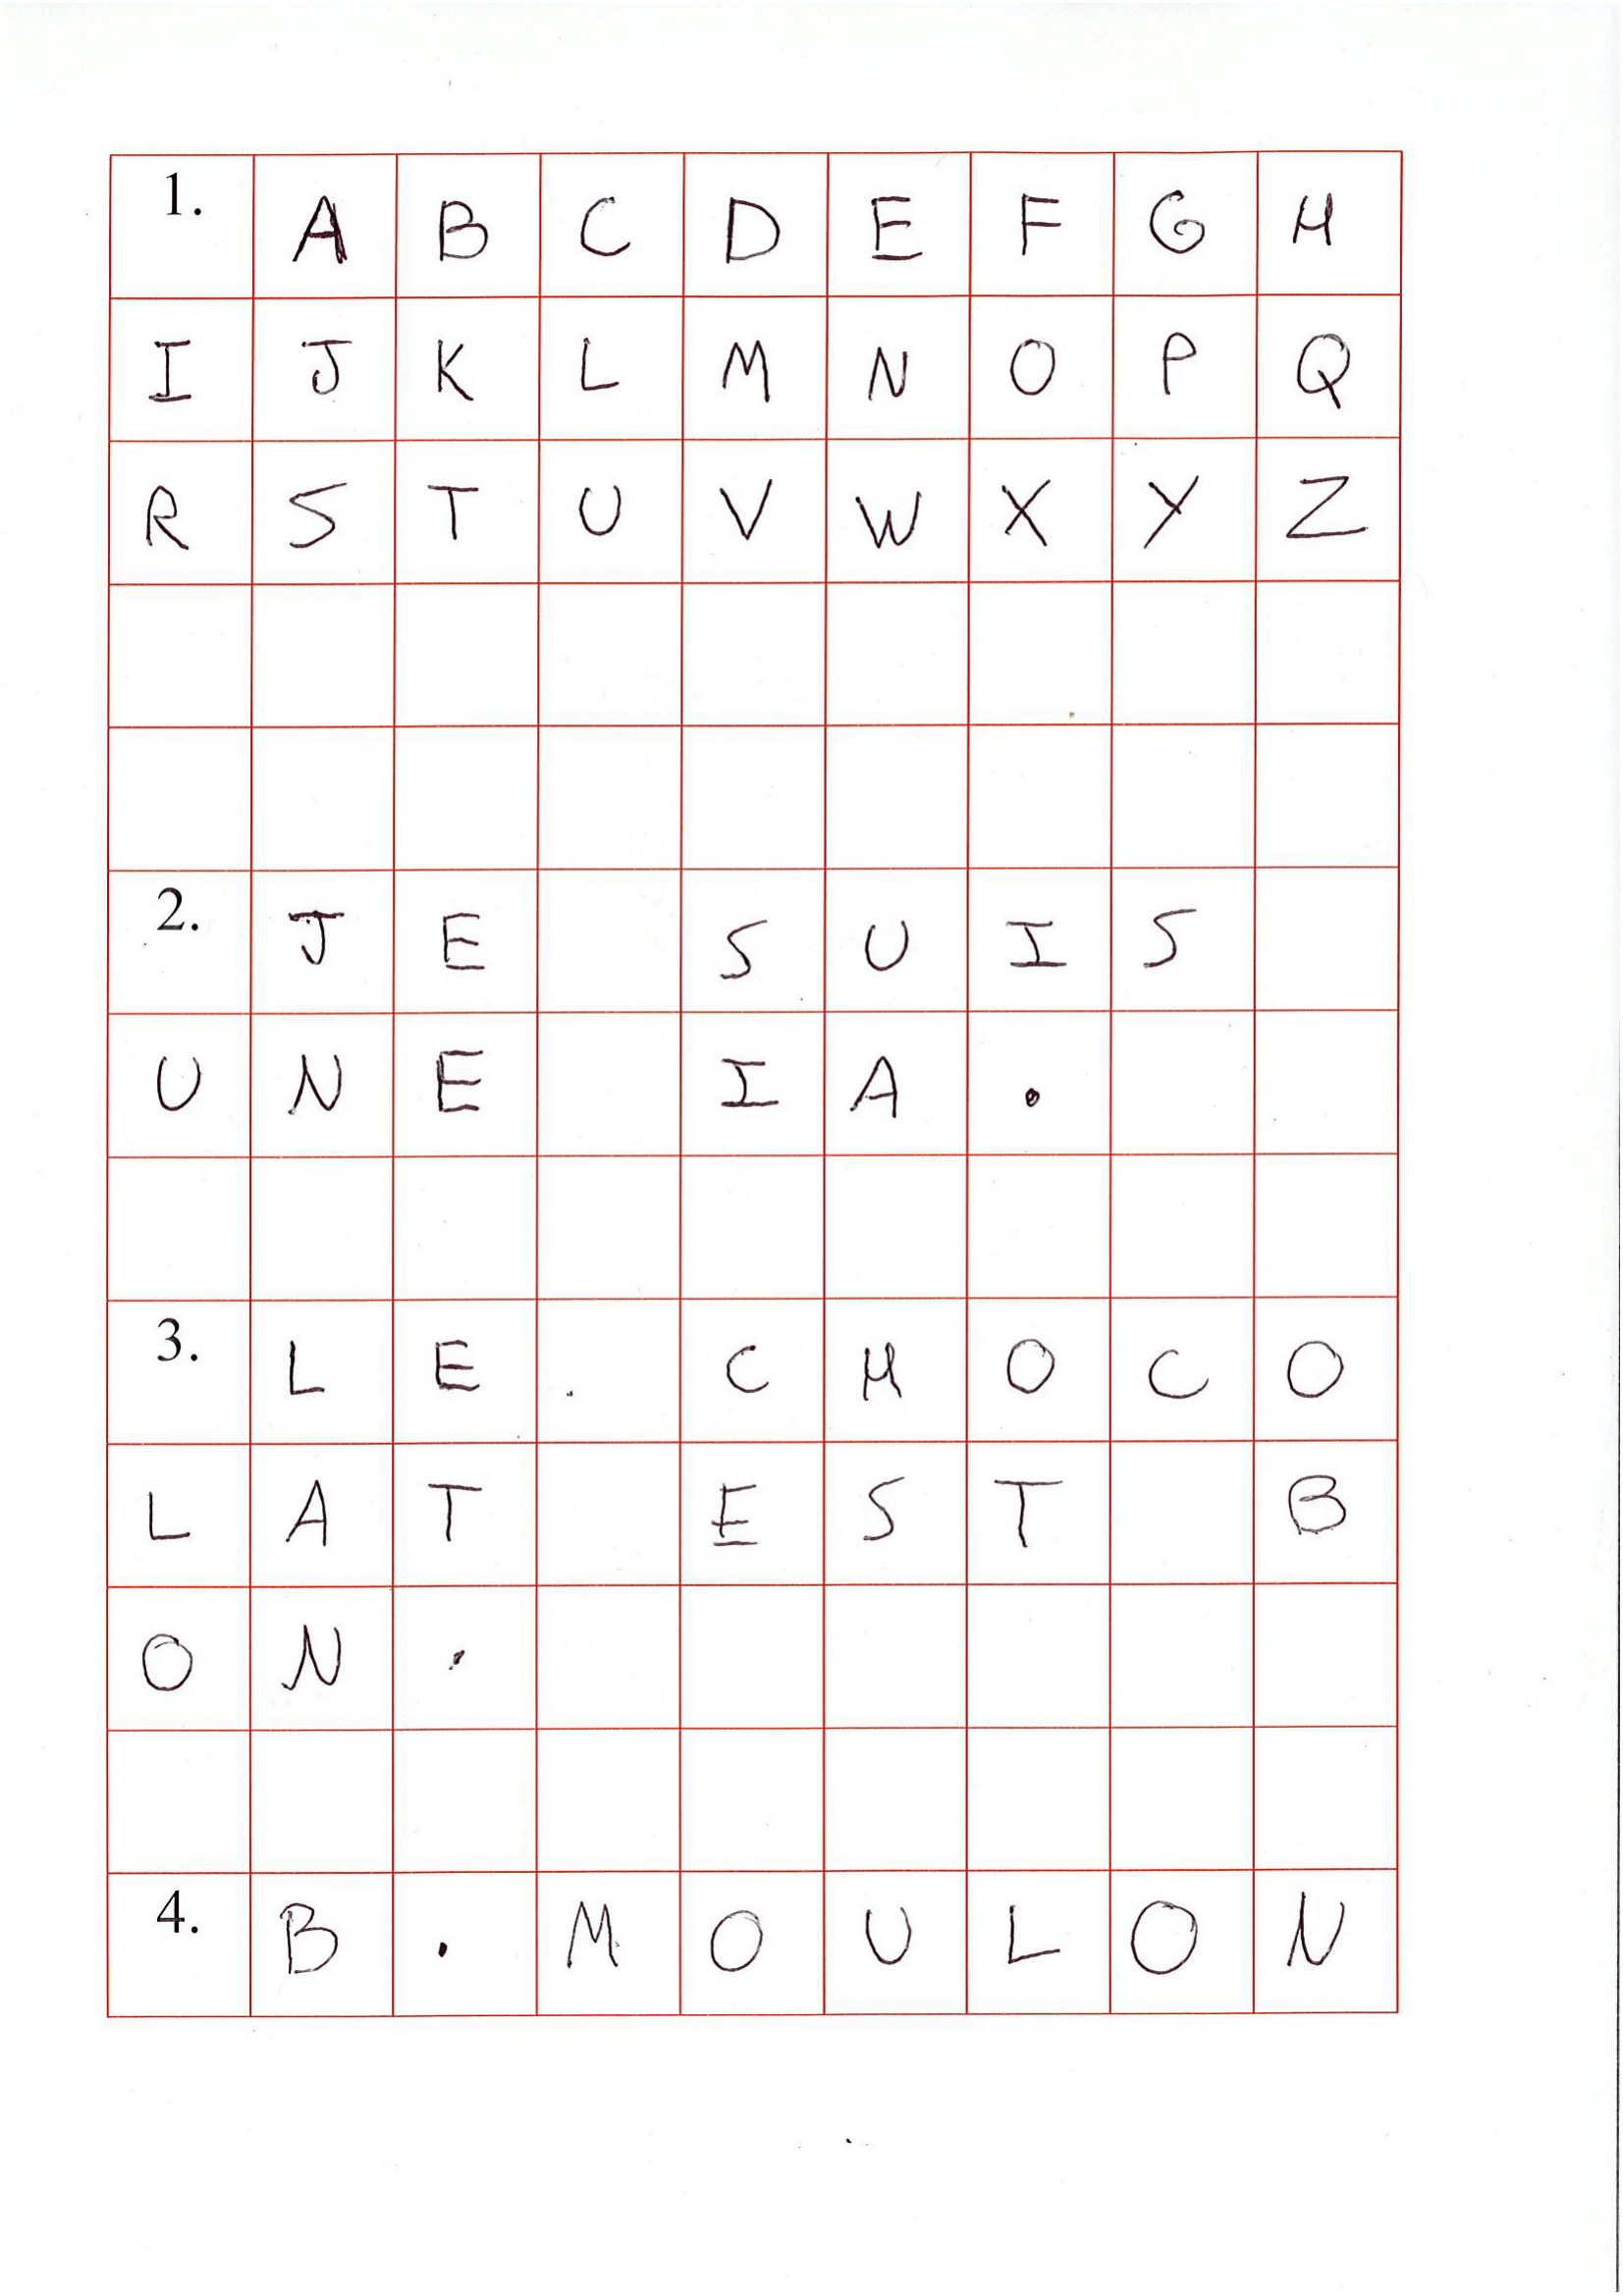 1. A B C D E F G H
I J K L M N O P Q
R S T U V W X Y Z
2. J E   S U I S
U N E   I A .
3. L E   C H O C O
L A T   E S T   B
O N .
4. B . M O U L O N